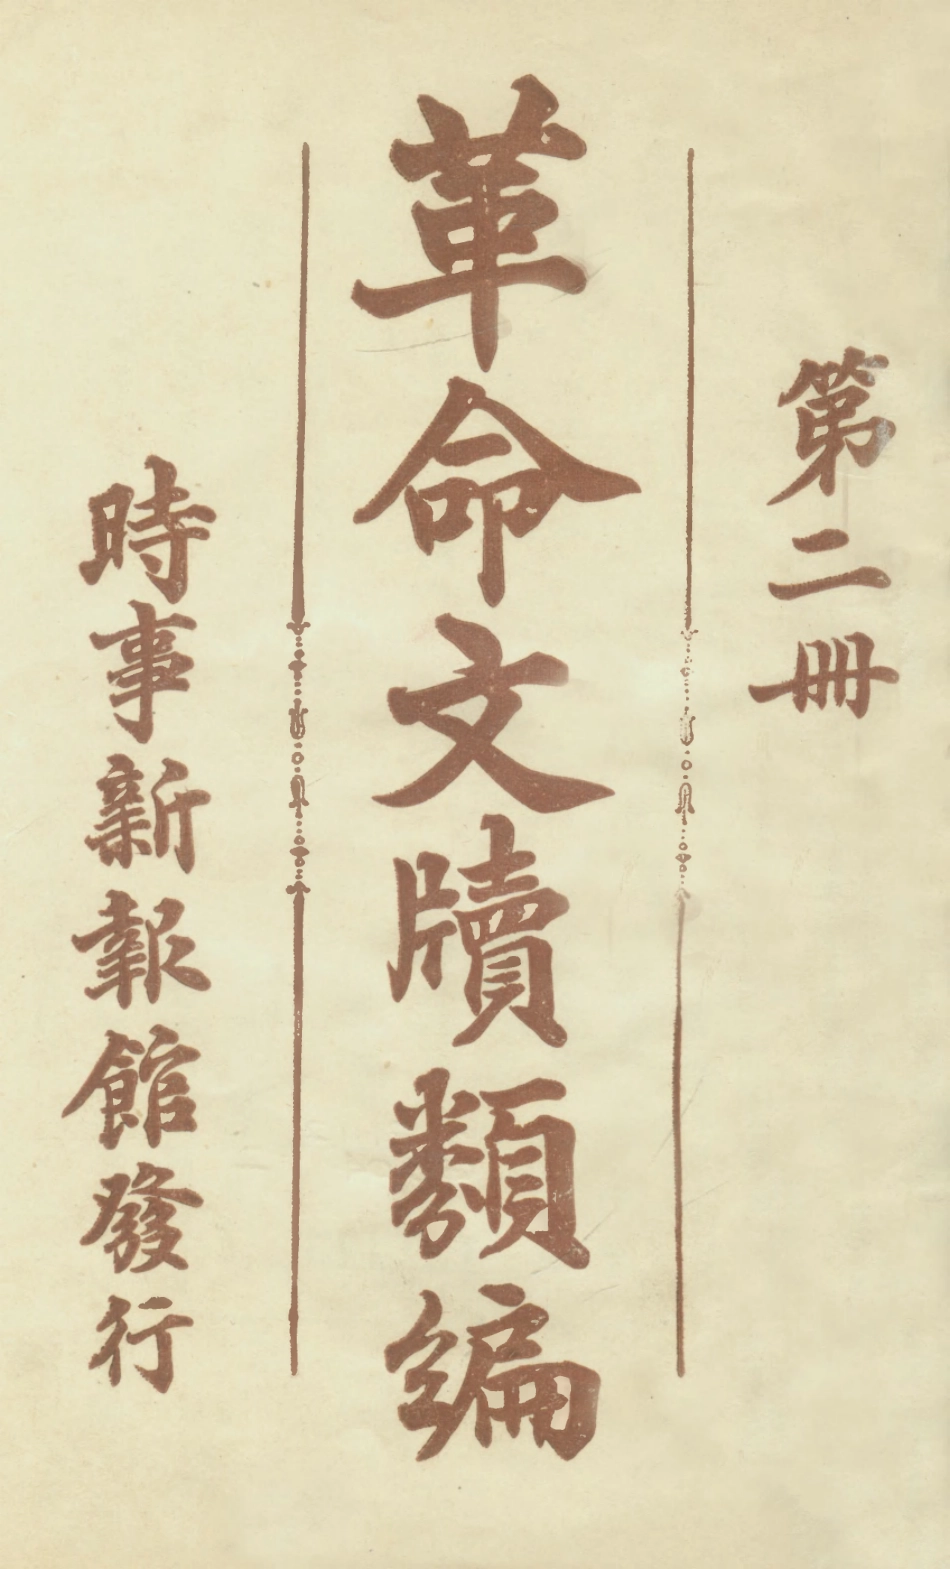 第二冊
革命文牘類編
時事新報館發行